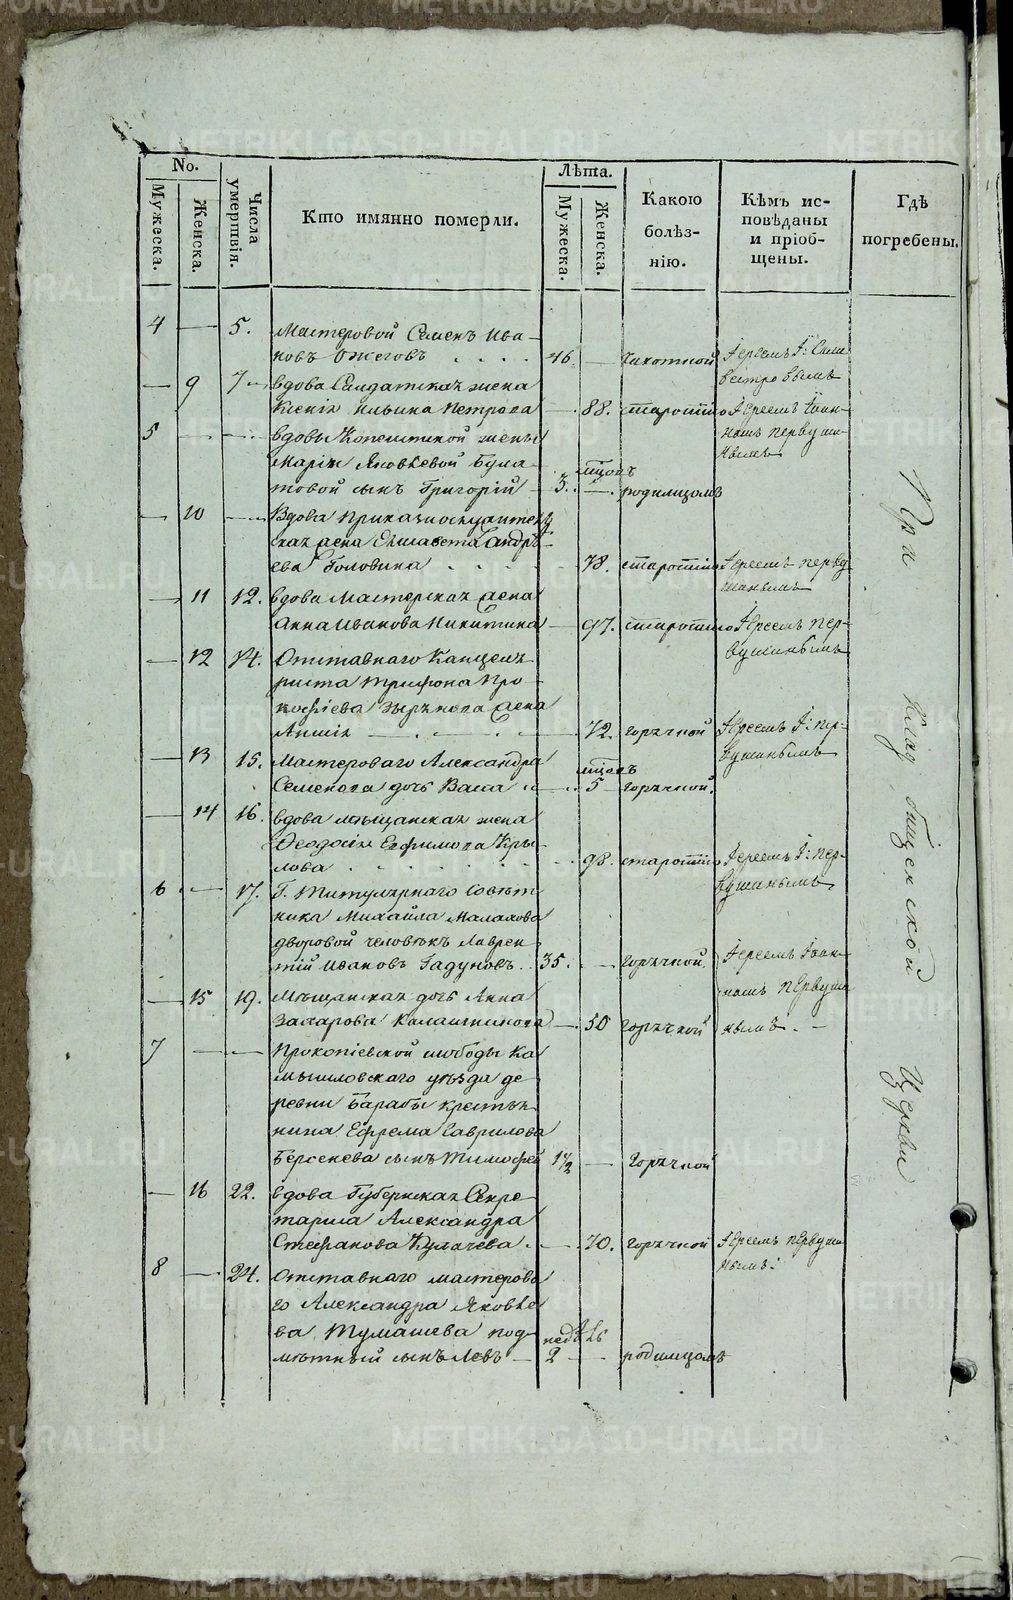 METRIKI.GASO-URAL.RU
No.
Мужеска.
Женска.
Числа умертвія.
Кто имянно померли.
Лѣта.
Мужеска.
Женска.
Какою болѣз-
нію.
Кѣмъ ис-
повѣданы
и пріоб-
щены.
Гдѣ
погребены.
4 — 5. Мастеровой Семенъ Ива-
новъ Ожеговъ 46 — чахотной Іереемъ І: Силь
вестровымъ
— 9 7 вдова Салдатская жена
Ксенія Ильина Петрова — 88. старостію Іереемъ Іоан-
номъ Первуши-
нымъ
5 — — вдовы женъ
Маріи Яковлевой Була-
товой сынъ Григорій мцовъ 3. — родимцомъ
— 10 — Вдова
жена Елисавета Андрѣ-
ева Головина 78. старостію Іереемъ Перву-
шинымъ
— 11 12. вдова Мастерская жена
Анна Иванова Никитина — 97. старостію Іереемъ Пер-
вушинымъ
— 12 14. Отставнаго Канцеля-
риста Трифона Про-
кофіева Зырянова жена
72. горячной Іереемъ І: Пер-
вушинымъ
— 13 15. Мастероваго Александра
Семенова дочь мцовъ 5 горячной.
— 14 16. вдова мѣщанская жена
Феодосія Евфимова Кры-
лова 98. старостію Іереемъ І: Пер-
вушинымъ
6 — 17. Г. Титулярнаго Совѣт-
ника Михайла Малахова
дворовой человѣкъ Лаврен-
тій Ивановъ Гадуновъ. 35. — горячной. Іереемъ Іоан-
номъ Первуши
— 15 19. Мѣщанская дочь Анна
Захарова Калашникова — 50 горячкой нымъ. —
7 — — Прокопіевской слободы Ка
мышловскаго уѣзда де
ревни Барабы крестья
нина Ефрема Гаврилова
Берсенева сынъ Тимофей 1½ — Горячной
— 16 22. вдова Губернская Секре-
тарша Александра
Стефанова Кулачева. — 70. горячной Іереемъ Первуши
нымъ.
8 — 24. Отставнаго мастерова
го Александра Яковле
ва Тумашева под-
мѣтный сынъ Левъ — недѣль 2 — родимцомъ
При Кладбищенской Церкви